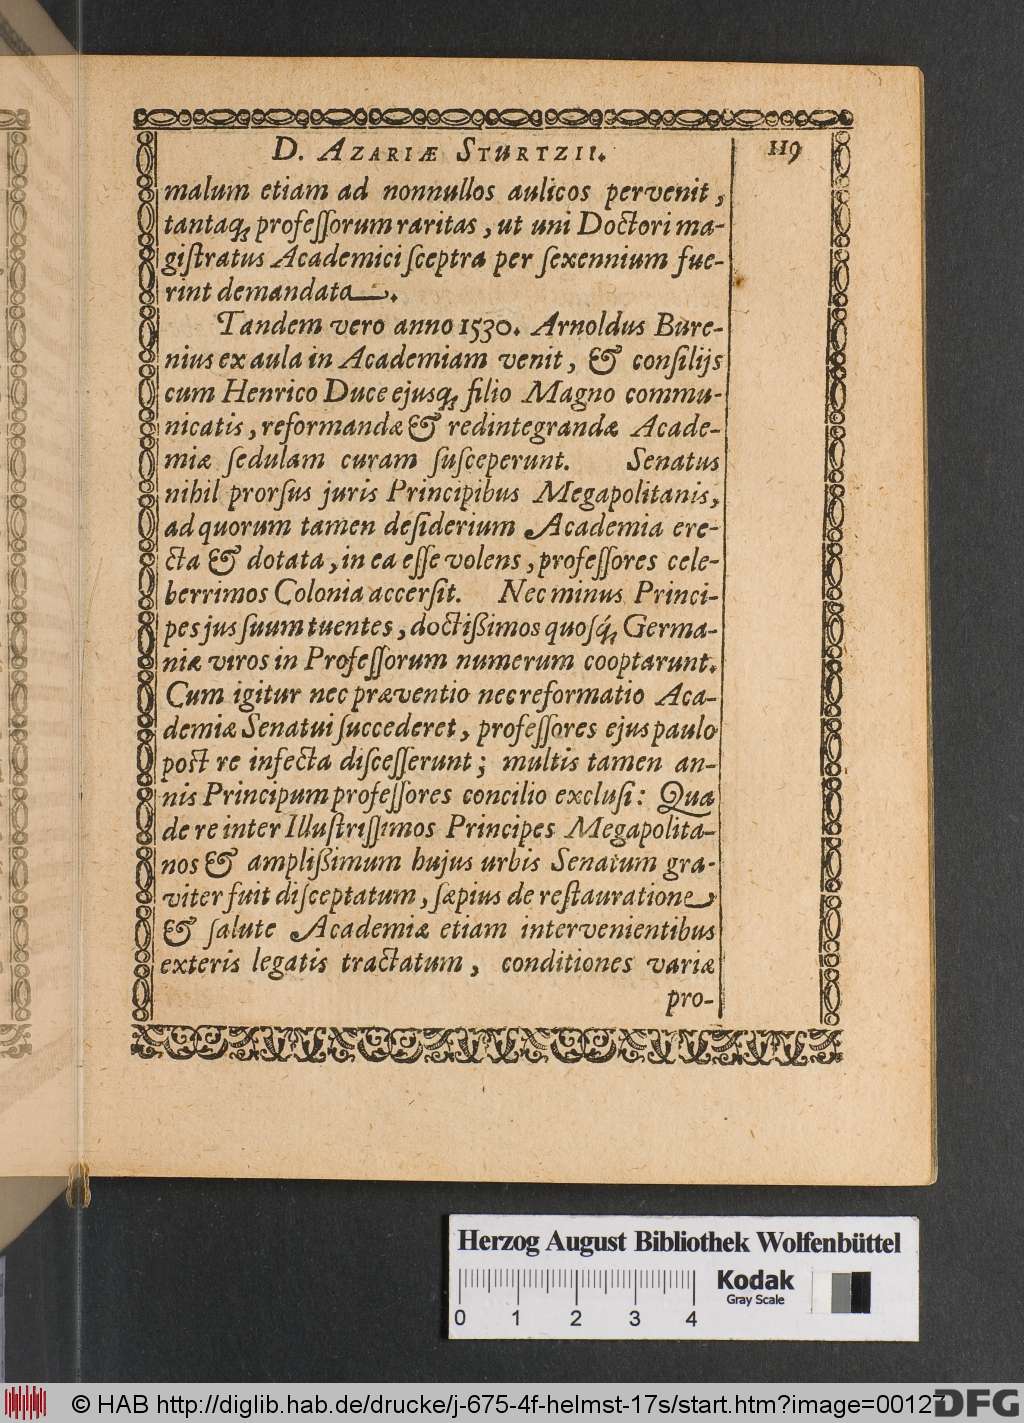 D. AZARIÆ STURTZII. 119
malum etiam ad nonnullos aulicos pervenit,
tantaq́; profeſſorum raritas, ut uni Doctori ma-
giſtratus Academici ſceptra per ſexennium fue-
rint demandata.
Tandem vero anno 1530. Arnoldus Bure-
nius ex aula in Academiam venit, & conſilijs
cum Henrico Duce ejusq; filio Magno commu-
nicatis, reformandæ & redintegrandæ Acade-
miæ ſedulam curam ſuſceperunt. Senatus
nihil prorſus juris Principibus Megapolitanis,
ad quorum tamen deſiderium Academia ere-
cta & dotata, in ea eſſe volens, profeſſores cele-
berrimos Colonia accerſit. Nec minus Princi-
pes jus ſuum tuentes, doctißimos quoſq́; Germa-
niæ viros in Profeſſorum numerum cooptarunt.
Cum igitur nec præventio nec reformatio Aca-
demiæ Senatui ſuccederet, profeſſores ejus paulo
poſt re infecta diſceſſerunt; multis tamen an-
nis Principum profeſſores concilio excluſi: Qua
de re inter Illuſtriſſimos Principes Megapolita-
nos & amplißimum hujus urbis Senatum gra-
viter fuit diſceptatum, ſæpius de reſtauratione
& ſalute Academiæ etiam intervenientibus
exteris legatis tractatum, conditiones variæ
pro-
Herzog August Bibliothek Wolfenbüttel
Kodak
Gray Scale
0 1 2 3 4
© HAB http://diglib.hab.de/drucke/j-675-4f-helmst-17s/start.htm?image=00127
DFG